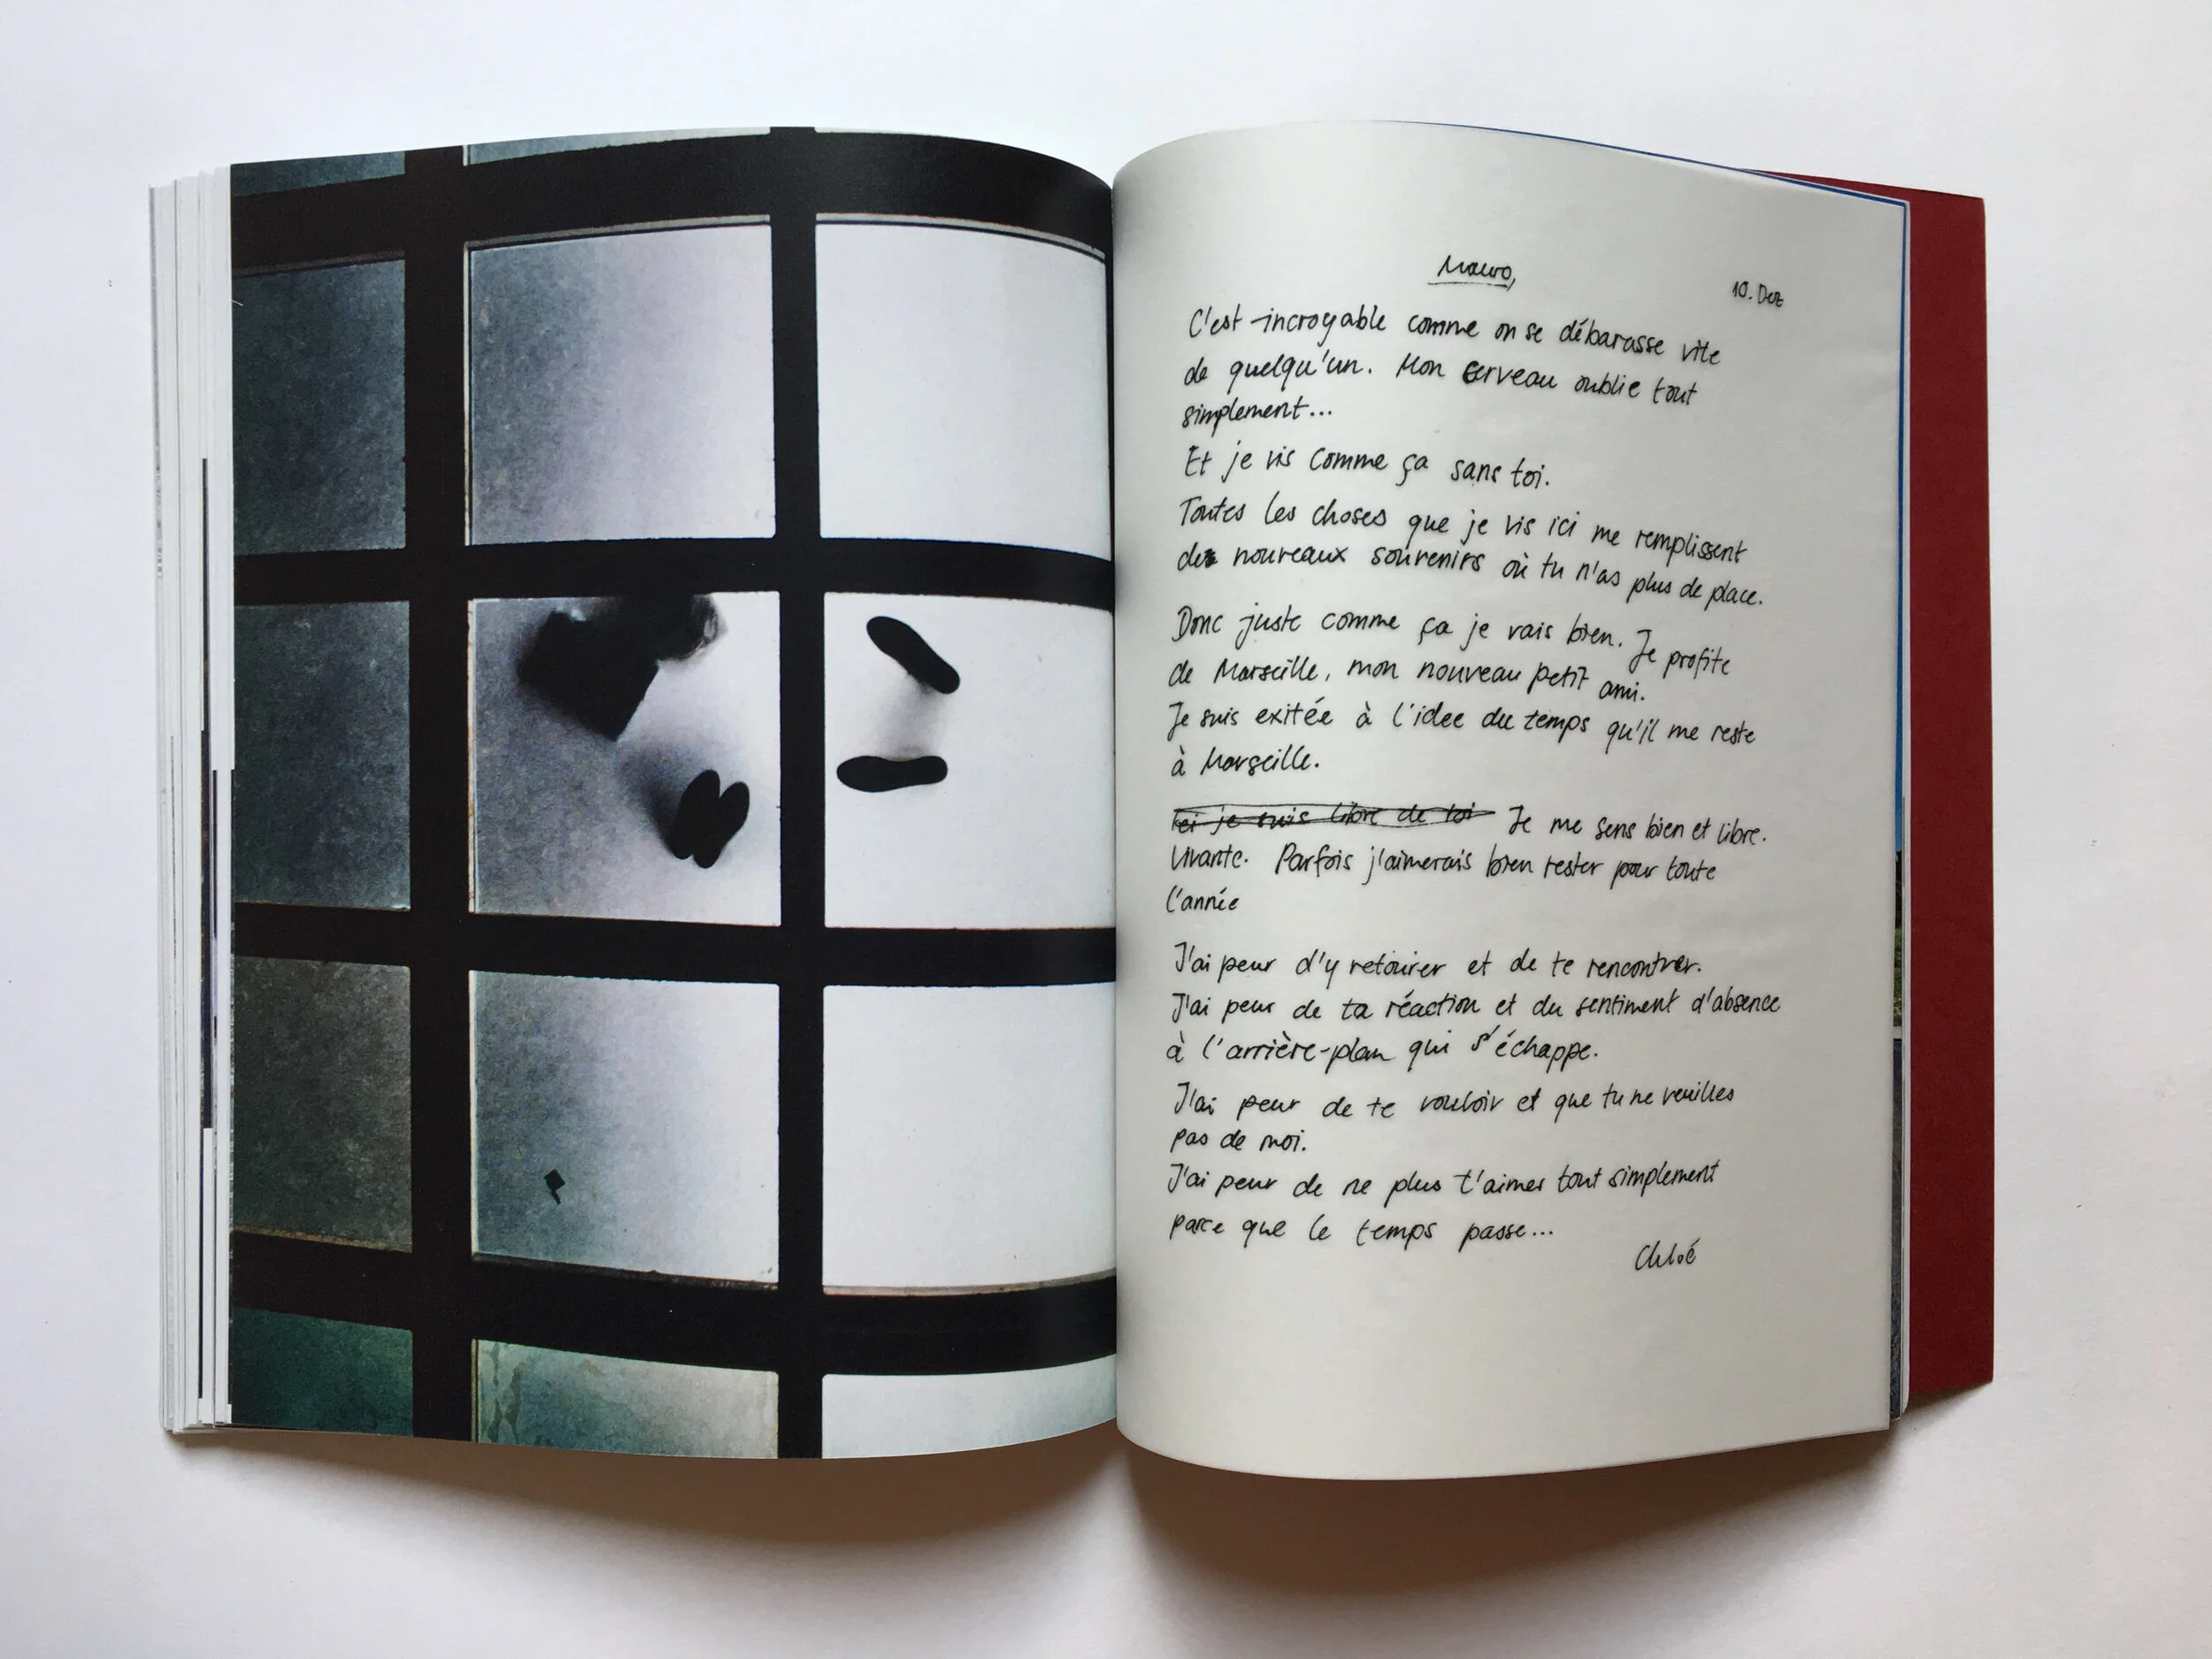 Mauro,
10. Dez
C'est incroyable comme on se débarasse vite
de quelqu'un. Mon cerveau oublie tout
simplement...
Et je vis comme ça sans toi.
Toutes les choses que je vis ici me remplissent
de nouveaux souvenirs où tu n'as plus de place.
Donc juste comme ça je vais bien. Je profite
de Marseille, mon nouveau petit ami.
Je suis exitée à l'idee du temps qu'il me reste
à Marseille.
Ici je suis libre de toi Je me sens bien et libre.
Vivante. Parfois j'aimerais bien rester pour toute
l'année
J'ai peur d'y retourer et de te rencontrer.
J'ai peur de ta réaction et du sentiment d'absence
à l'arrière-plan qui s'échappe.
J'ai peur de te vouloir et que tu ne veuilles
pas de moi.
J'ai peur de ne plus t'aimer tout simplement
parce que le temps passe...
Chloé